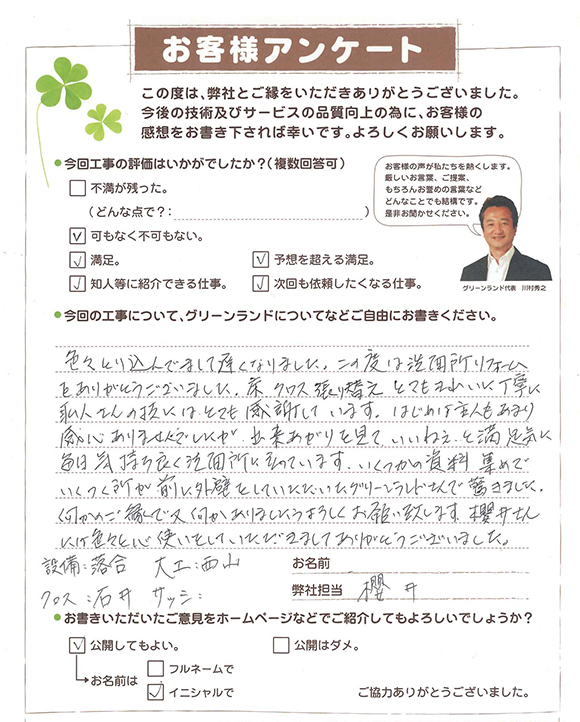 お客様アンケート
この度は、弊社とご縁をいただきありがとうございました。
今後の技術及びサービスの品質向上の為に、お客様の
感想をお書き下されば幸いです。よろしくお願いします。
●今回工事の評価はいかがでしたか?(複数回答可)
□不満が残った。
(どんな点で?: )
☑可もなく不可もない。
☑満足。 ☑予想を超える満足。
☑知人等に紹介できる仕事。 ☑次回も依頼したくなる仕事。
お客様の声が私たちを熱くします。
厳しいお言葉、ご提案、
もちろんお誉めの言葉など
どんなことでも結構です。
是非お聞かせください。
グリーンランド代表 川村秀之
●今回の工事について、グリーンランドについてなどご自由にお書きください。
色々とり込んでまして遅くなりました。この度は洗面所リフォーム
をありがとうございました。床 クロス 張り替え とてもきれいに丁寧に
職人さんの技にはとても感謝して います。はじめは主人もあまり
関心ありませんでしたが 出来あがりを見て いいねぇ と満足気に
毎日気持ち良く洗面所に立っています。いくつかの資料 集めて
いくつく所が前に外壁をしていただいたグリーンランドさんで驚きました。
何かのご縁で又何かありましたらよろしくお願い致します。櫻井さん
には色々と心使いをしていただきましてありがとうございました。
設備:落合 大工:西山
クロス:石井 サッシ:
お名前
弊社担当 櫻井
●お書きいただいたご意見をホームページなどでご紹介してもよろしいでしょうか?
☑公開してもよい。 □公開はダメ。
お名前は □フルネームで
☑イニシャルで
ご協力ありがとうございました。